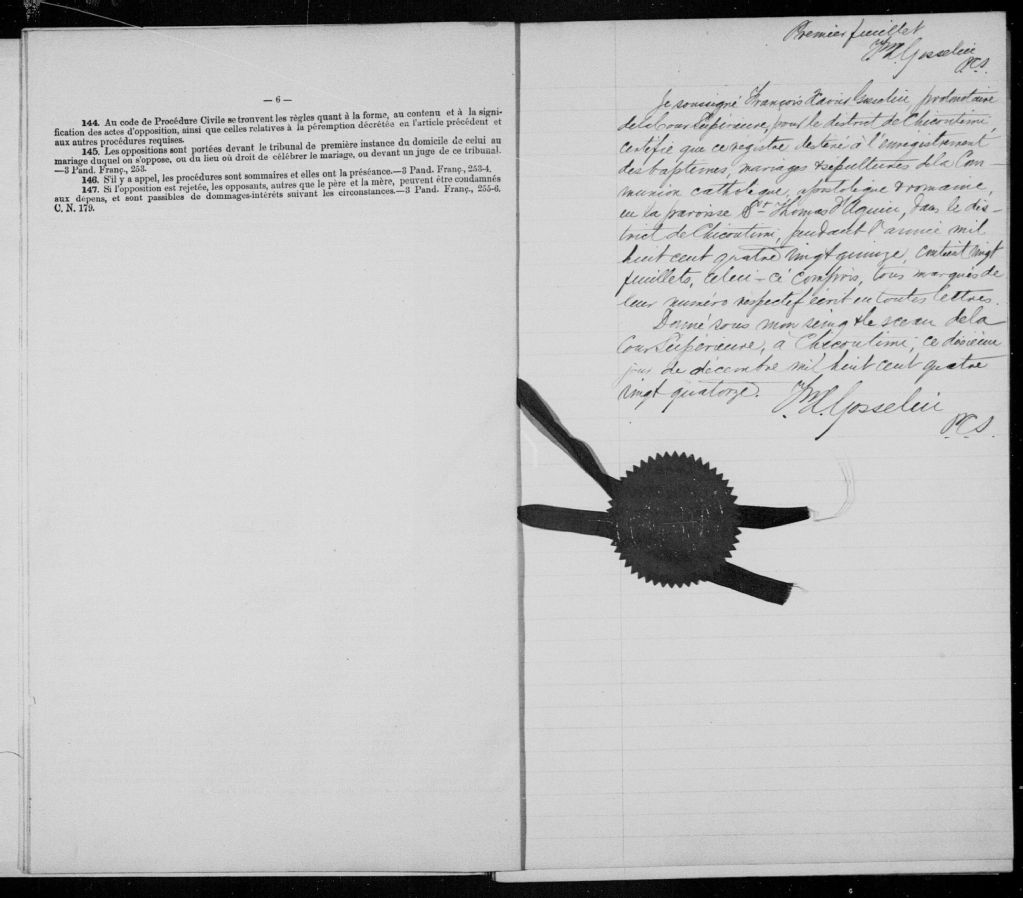 — 6 —
144. Au code de Procédure Civile se trouvent les règles quant à la forme, au contenu et à la signi-
fication des actes d'opposition, ainsi que celles relatives à la péremption décrétée en l'article précédent et
aux autres procédures requises.
145. Les oppositions sont portées devant le tribunal de première instance du domicile de celui au
mariage duquel on s'oppose, ou du lieu où droit de célébrer le mariage, ou devant un juge de ce tribunal.
—3 Pand. Franç., 253.
146. S'il y a appel, les procédures sont sommaires et elles ont la préséance.—3 Pand. Franç., 253-4.
147. Si l'opposition est rejetée, les opposants, autres que le père et la mère, peuvent être condamnés
aux dépens, et sont passibles de dommages-intérêts suivant les circonstances.—3 Pand. Franç., 255-6.
C. N. 179.
Premier feuillet
Gosselin
P.C.S.
Je soussigné François Xavier Gosselin, protonotaire
de la Cour Supérieure, pour le district de Chicoutimi,
certifie que ce registre destiné à l'enregistrement
des baptêmes, mariages & sépultures de la Com-
munion catholique, apostolique & romaine,
en la paroisse St Thomas d'Aquin, dans le dis-
trict de Chicoutimi, pendant l'année mil
huit cent quatre vingt quinze, contient vingt
feuillets, celui-ci compris, tous marqués de
leur numéro respectif écrit en toutes lettres.
Donné sous mon seing & le sceau de la
Cour Supérieure, à Chicoutimi, ce dixième
jour de décembre mil huit cent quatre
vingt quatorze.
Gosselin
P.C.S.